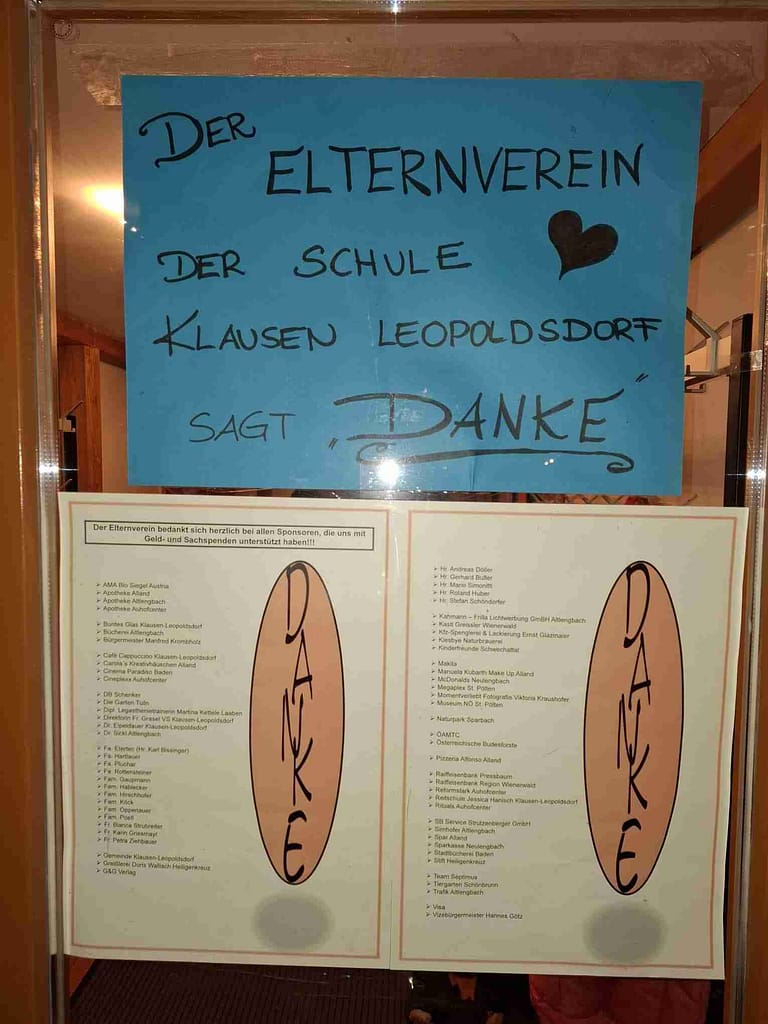 DER
ELTERNVEREIN
DER SCHULE
KLAUSEN LEOPOLDSDORF
SAGT „DANKE"
Der Elternverein bedankt sich herzlich bei allen Sponsoren, die uns mit
Geld- und Sachspenden unterstützt haben!!!
➢ AMA Bio Siegel Austria
➢ Apotheke Alland
➢ Apotheke Altlengbach
➢ Apotheke Auhofcenter
➢ Buntes Glas Klausen-Leopoldsdorf
➢ Bücherei Altlengbach
➢ Bürgermeister Manfred Krombholz
➢ Café Cappuccino Klausen-Leopoldsdorf
➢ Carola´s Kreativhäuschen Alland
➢ Cinema Paradiso Baden
➢ Cineplexx Auhofcenter
➢ DB Schenker
➢ Die Garten Tulln
➢ Dipl. Legasthenietrainerin Martina Kettele Laaben
➢ Direktorin Fr. Gresel VS Klausen-Leopoldsdorf
➢ Dr. Elpeldauer Klausen-Leopoldsdorf
➢ Dr. Sickl Altlengbach
➢ Fa. Elertec (Hr. Karl Bissinger)
➢ Fa. Hartlauer
➢ Fa. Pluchar
➢ Fa. Rottensteiner
➢ Fam. Gaupmann
➢ Fam. Hablecker
➢ Fam. Hirschhofer
➢ Fam. Köck
➢ Fam. Oppenauer
➢ Fam. Poell
➢ Fr. Bianca Strubreiter
➢ Fr. Karin Griesmayr
➢ Fr. Petra Ziehbauer
➢ Gemeinde Klausen-Leopoldsdorf
➢ Greißlerei Doris Wallisch Heiligenkreuz
➢ G&G Verlag
DANKE
➢ Hr. Andreas Döller
➢ Hr. Gerhard Buller
➢ Hr. Mario Simonitti
➢ Hr. Roland Huber
➢ Hr. Stefan Schöndorfer
➢ Kahmann – Frilla Lichtwerbung GmBH Altlengbach
➢ Kastl Greissler Wienerwald
➢ Kfz-Spenglerei & Lackierung Ernst Glazmaier
➢ Kiesbye Naturbrauerei
➢ Kinderfreunde Schwechattal
➢ Makita
➢ Manuela Kubarth Make Up Alland
➢ McDonalds Neulengbach
➢ Megaplex St. Pölten
➢ Momentverliebt Fotografie Viktoria Kraushofer
➢ Museum NÖ St. Pölten
➢ Naturpark Sparbach
➢ ÖAMTC
➢ Österreichische Budesforste
➢ Pizzeria Alfonso Alland
➢ Raiffeisenbank Pressbaum
➢ Raiffeisenbank Region Wienerwald
➢ Reformstark Auhofcenter
➢ Reitschule Jessica Hanisch Klausen-Leopoldsdorf
➢ Rituals Auhofcenter
➢ SB Service Strutzenberger GmbH
➢ Simhofer Altlengbach
➢ Spar Alland
➢ Sparkasse Neulengbach
➢ Stadtbücherei Baden
➢ Stift Heiligenkreuz
➢ Team Septimus
➢ Tiergarten Schönbrunn
➢ Trafik Altlengbach
➢ Visa
➢ Vizebürgermeister Hannes Götz
DANKE